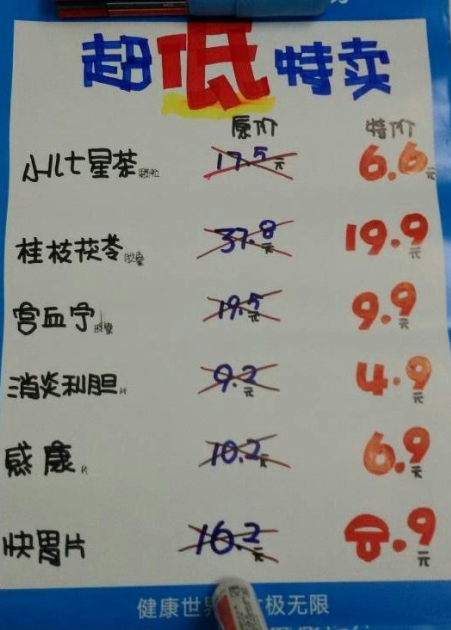 超低特卖
原价 特价
小儿七星茶颗粒 17.5元 6.6元
桂枝茯苓胶囊 37.8元 19.9元
宫血宁胶囊 19.5元 9.9元
消炎利胆片 9.2元 4.9元
感康片 10.2元 6.9元
快胃片 16.2元 8.9元
健康世界 极无限